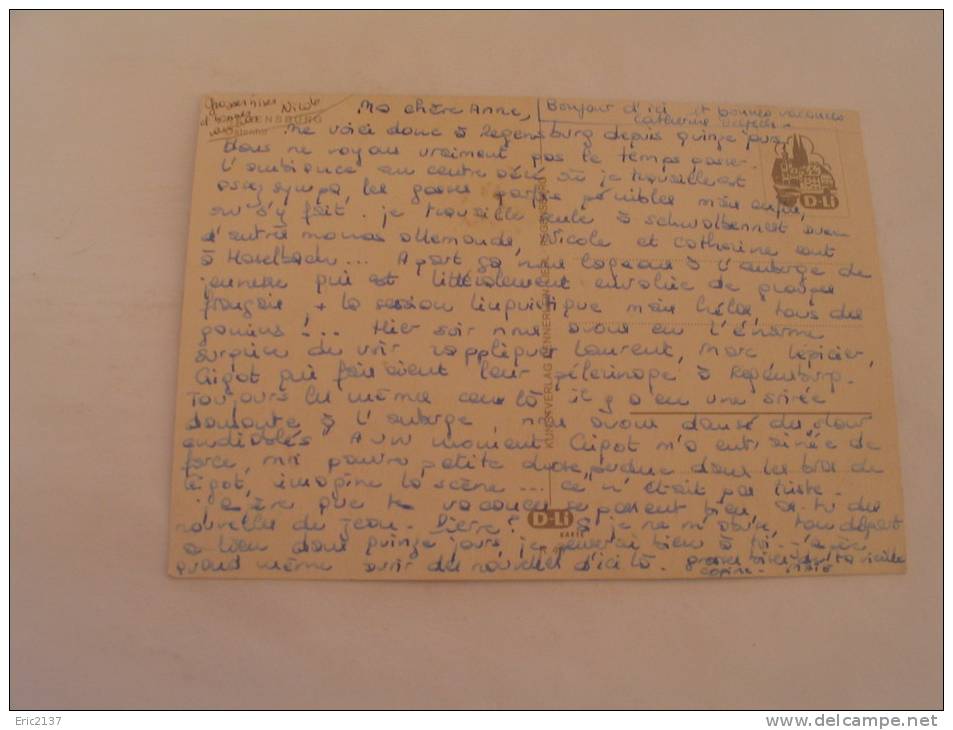 Grosses bises Nicole
REGENSBURG
Ma chère Anne,
Bonjour d'ici et bonnes vacances
Catherine
Me voici donc à Regensburg depuis quinze jours.
nous ne voyons vraiment pas le temps passer.
L'ambiance au centre aéré où je travaille est
assez sympa, les gosses parfois pénibles mais enfin,
on s'y fait. je travaille seule à Schwalbennest avec
d'autres monos allemands, Nicole et Catherine sont
à Haselbach... A part ça nous logeons à l'auberge de
jeunesse qui est littéralement envahie de groupes
français, + la session linguistique mais hélas, tous des
gamins !... Hier soir nous avons eu l'énorme
surprise de voir rappliquer Laurent, Marc Lépicier,
Gigot qui faisaient leur pélerinage à Regensburg.
Toujours les mêmes ceux là, il y a eu une soirée
dansante à l'auberge, nous avons dansé des slow
endiablés. A UN moment Gigot m'a entrainée de
force, moi pauvre petite chose perdue dans les bras de
Gigot, imagine la scène... ce n'était pas triste.
j'espère que tes vacances se passent bien. as-tu des
nouvelles de Jean-Pierre? Si je ne m'abuse, ton départ
a lieu dans quinze jours, je penserai bien à toi. j'espère
quand même avoir des nouvelles d'ici là. grosses bises de ta vieille
copine.
KUNSTVERLAG
D-Li
KARTE
D-Li
Eric2137
www.delcampe.net